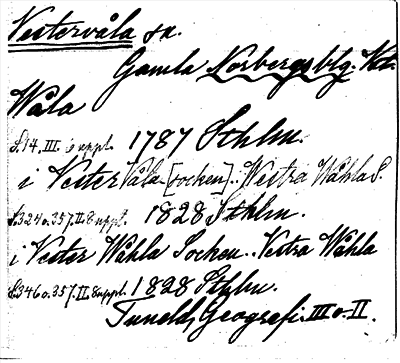 Vestervåla sn.
Gamla Norbergs blg. Vst.
Wåla
S. 14. III. i suppl. 1787 Sthlm.
i Vester Våla [socken].. Westra Wåhla S.
S. 324 o. 357. II. Suppl. 1828 Sthlm.
i Vester Wåhla Socken.. Vestra Wåhla
S. 346 o. 357. II. Suppl. 1828 Sthlm.
Tunelds Geografi. III o. II.